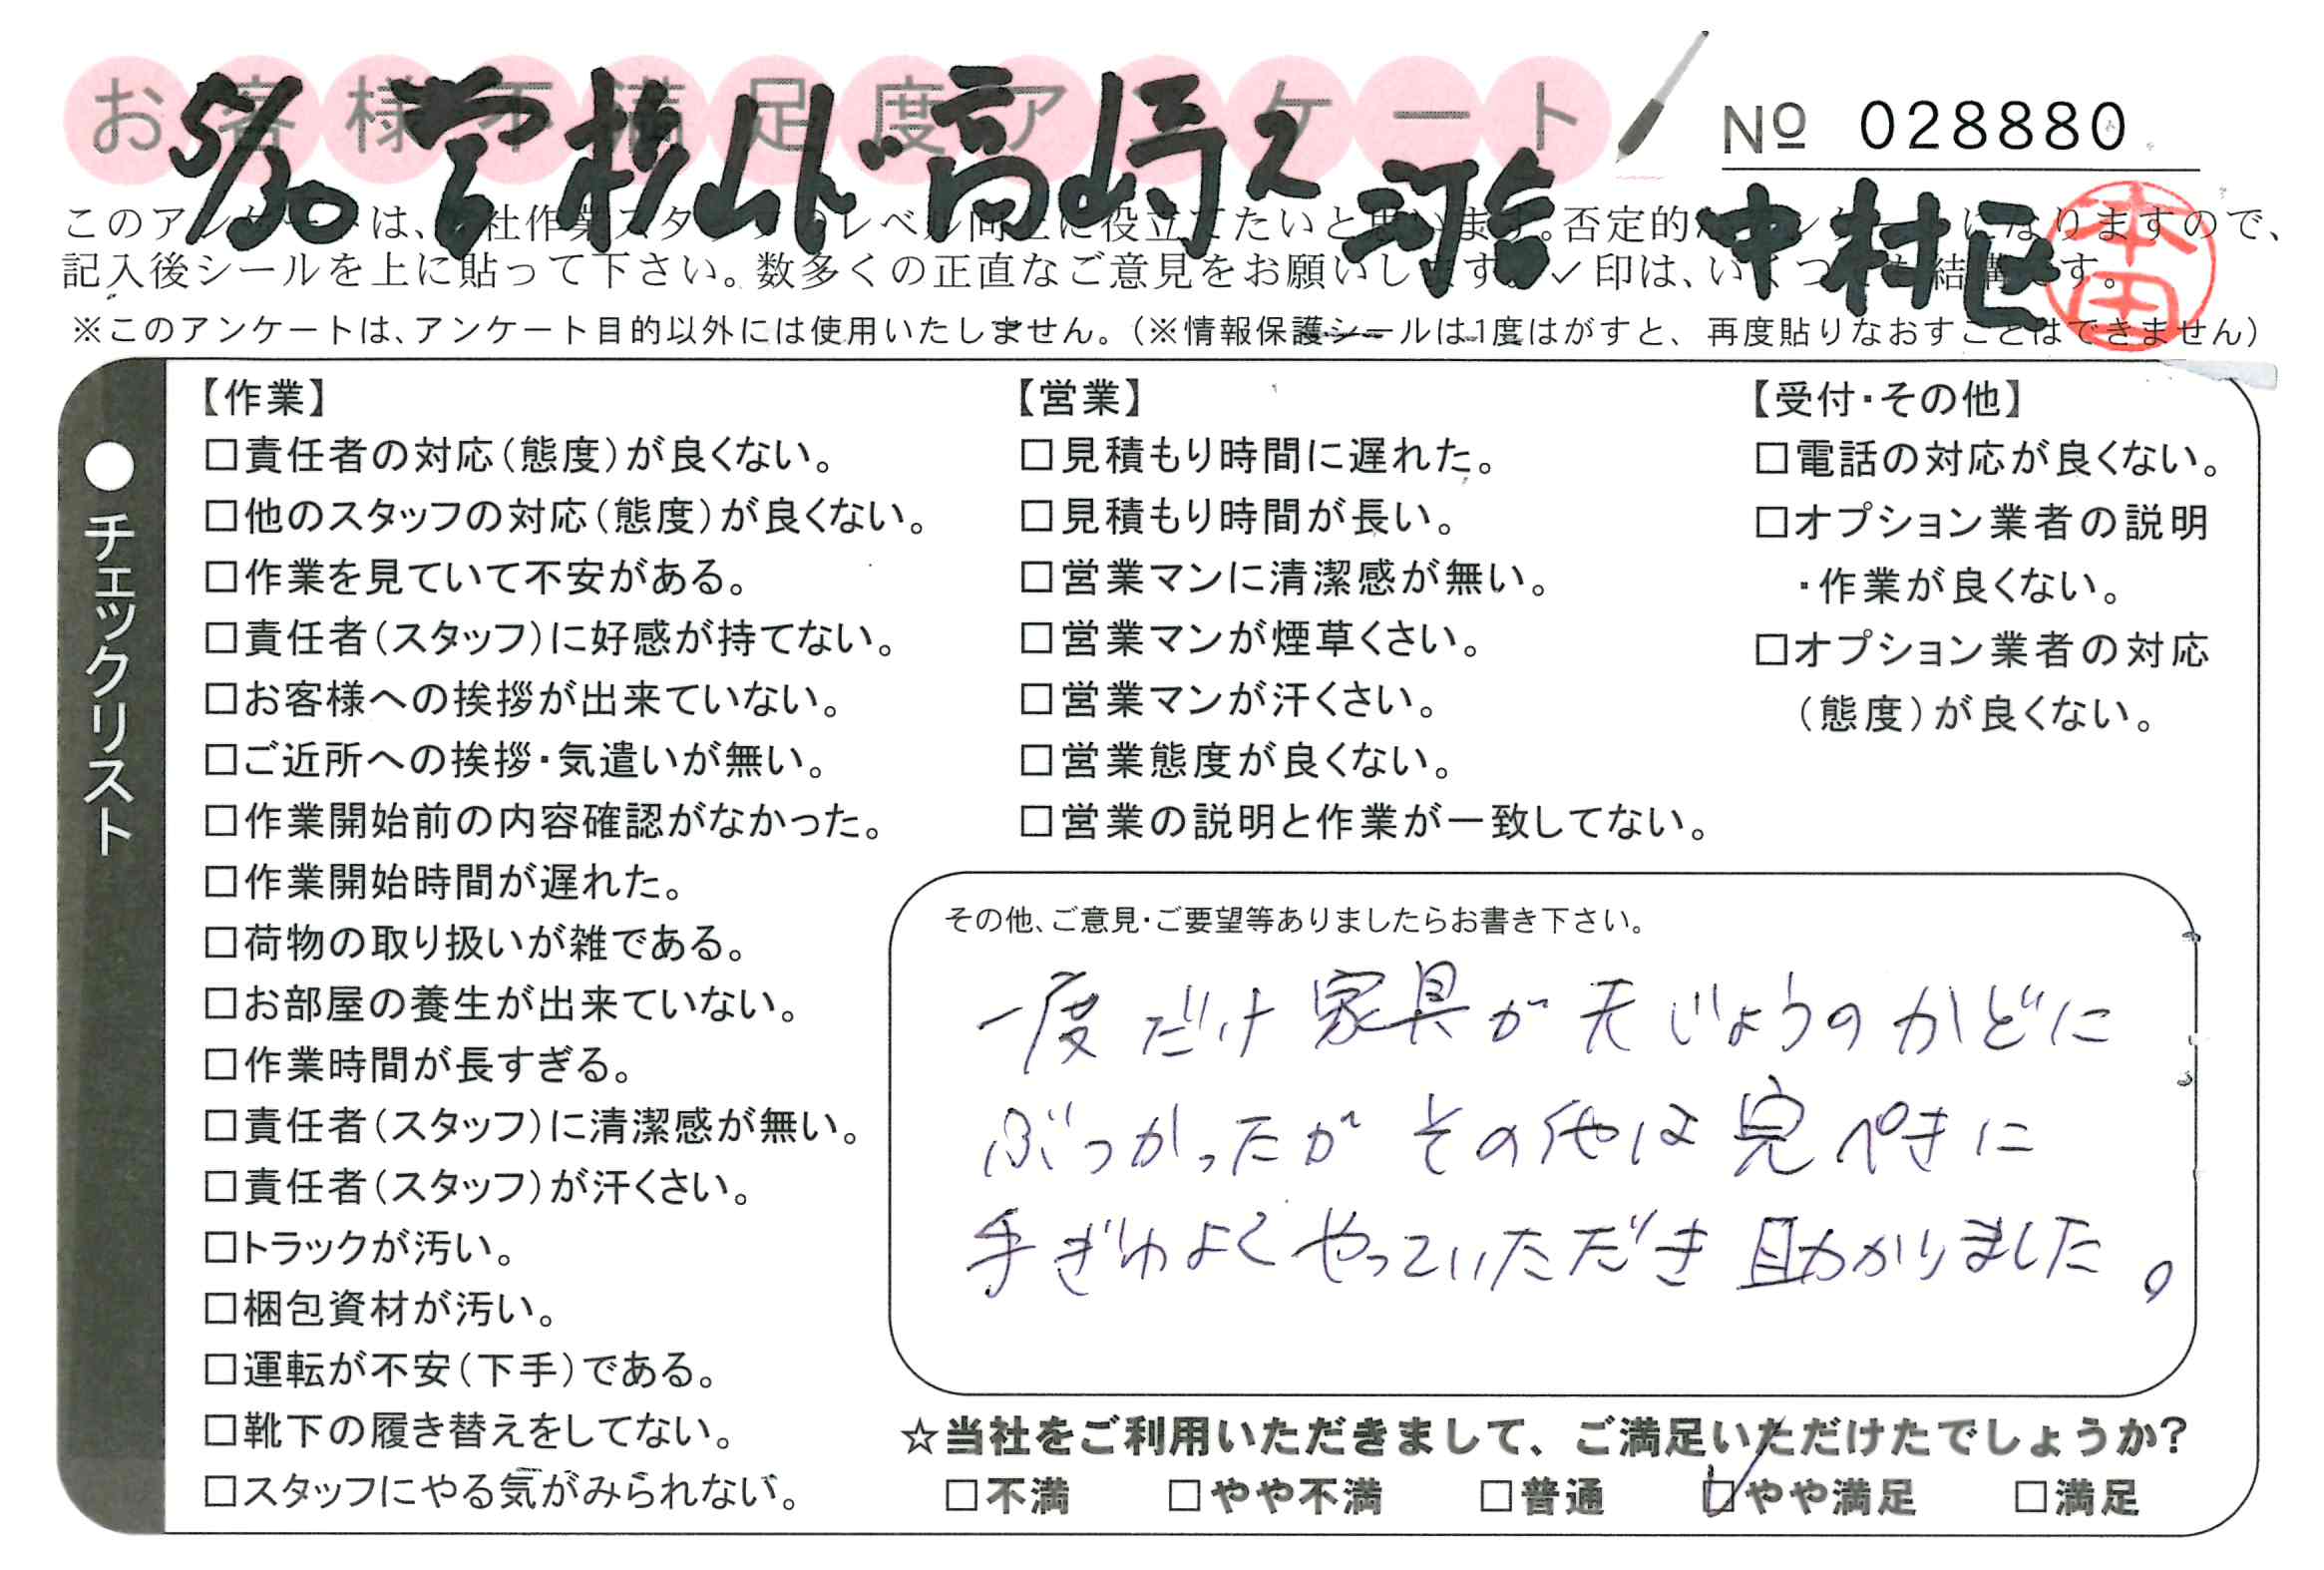 お客様不満足度アンケート
№ 028880
5/30 営 杉山 ド 高崎 2 河合 中村区
本田
このアンケートは、 社作業スタッフのレベル向上に役立てたいと思います。否定的なアンケートになりますので、
記入後シールを上に貼って下さい。数多くの正直なご意見をお願いします。✓印は、いくつでも結構です。
※このアンケートは、アンケート目的以外には使用いたしません。(※情報保護シールは1度はがすと、再度貼りなおすことはできません)
●チェックリスト
【作業】
□責任者の対応(態度)が良くない。
□他のスタッフの対応(態度)が良くない。
□作業を見ていて不安がある。
□責任者(スタッフ)に好感が持てない。
□お客様への挨拶が出来ていない。
□ご近所への挨拶・気遣いが無い。
□作業開始前の内容確認がなかった。
□作業開始時間が遅れた。
□荷物の取り扱いが雑である。
□お部屋の養生が出来ていない。
□作業時間が長すぎる。
□責任者(スタッフ)に清潔感が無い。
□責任者(スタッフ)が汗くさい。
□トラックが汚い。
□梱包資材が汚い。
□運転が不安(下手)である。
□靴下の履き替えをしてない。
□スタッフにやる気がみられない。
【営業】
□見積もり時間に遅れた。
□見積もり時間が長い。
□営業マンに清潔感が無い。
□営業マンが煙草くさい。
□営業マンが汗くさい。
□営業態度が良くない。
□営業の説明と作業が一致してない。
【受付・その他】
□電話の対応が良くない。
□オプション業者の説明
・作業が良くない。
□オプション業者の対応
(態度)が良くない。
その他、ご意見・ご要望等ありましたらお書き下さい。
一度だけ家具が天じょうのかどに
ぶつかったが その他は完ぺきに
手ぎわよくやっていただき助かりました。
☆当社をご利用いただきまして、ご満足いただけたでしょうか?
□不満 □やや不満 □普通 ☑やや満足 □満足